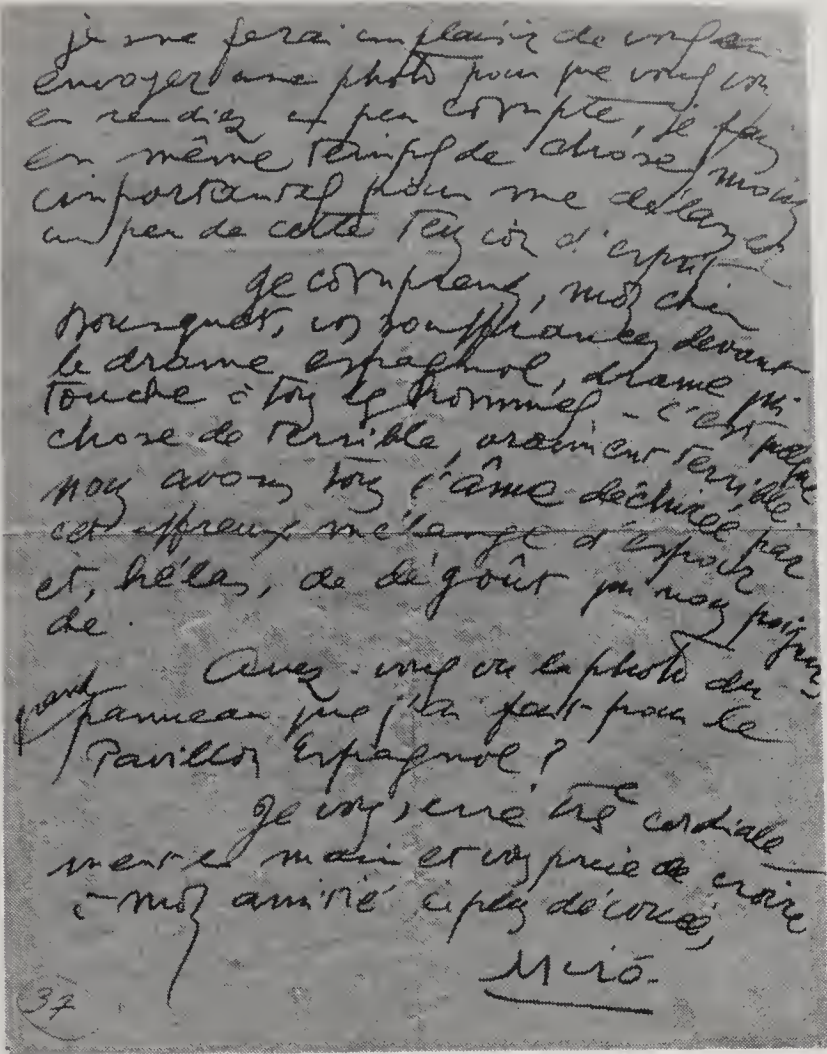 je me ferai un plaisir de vous en
envoyer une photo pour que vous vous
en rendiez un peu compte, je fais
en même temps de choses moins
importantes pour me délasser
un peu de cette tension d'esprit
Je comprends, mon cher
Bousquet, vos souffrances devant
le drame espagnol, drame qui
touche à tous les hommes - c'est quelque
chose de terrible, vraiment terrible.
nous avons tous l'âme déchirée par
cet affreux mélange d'espoir
et, hélas, de dégoût qui nous poigne
de.
Avez-vous vu la photo du
grand panneau que j'ai fait pour le
Pavillon Espagnol ?
Je vous serre très cordiale
ment la main et vous prie de croire
à mon amitié la plus dévouée,
Miró.
37